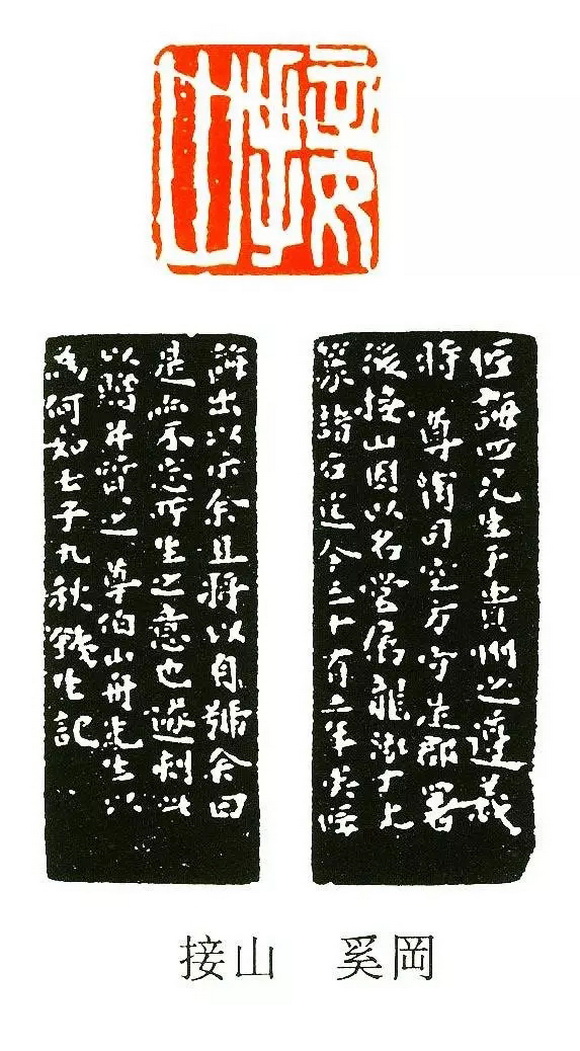 接山
誨四兄生于貴州之遵義
時 尊甫司空方守是郡署
後接山因以名嘗属龍泓丁丈
篆諸石迄今三十有二年矣
誨出以示余且將以自號余曰
是亦不忘所生之意也遂制此
以贈并質之 尊伯山舟先生以
為何如壬子九秋鐵生記
接山 奚岡